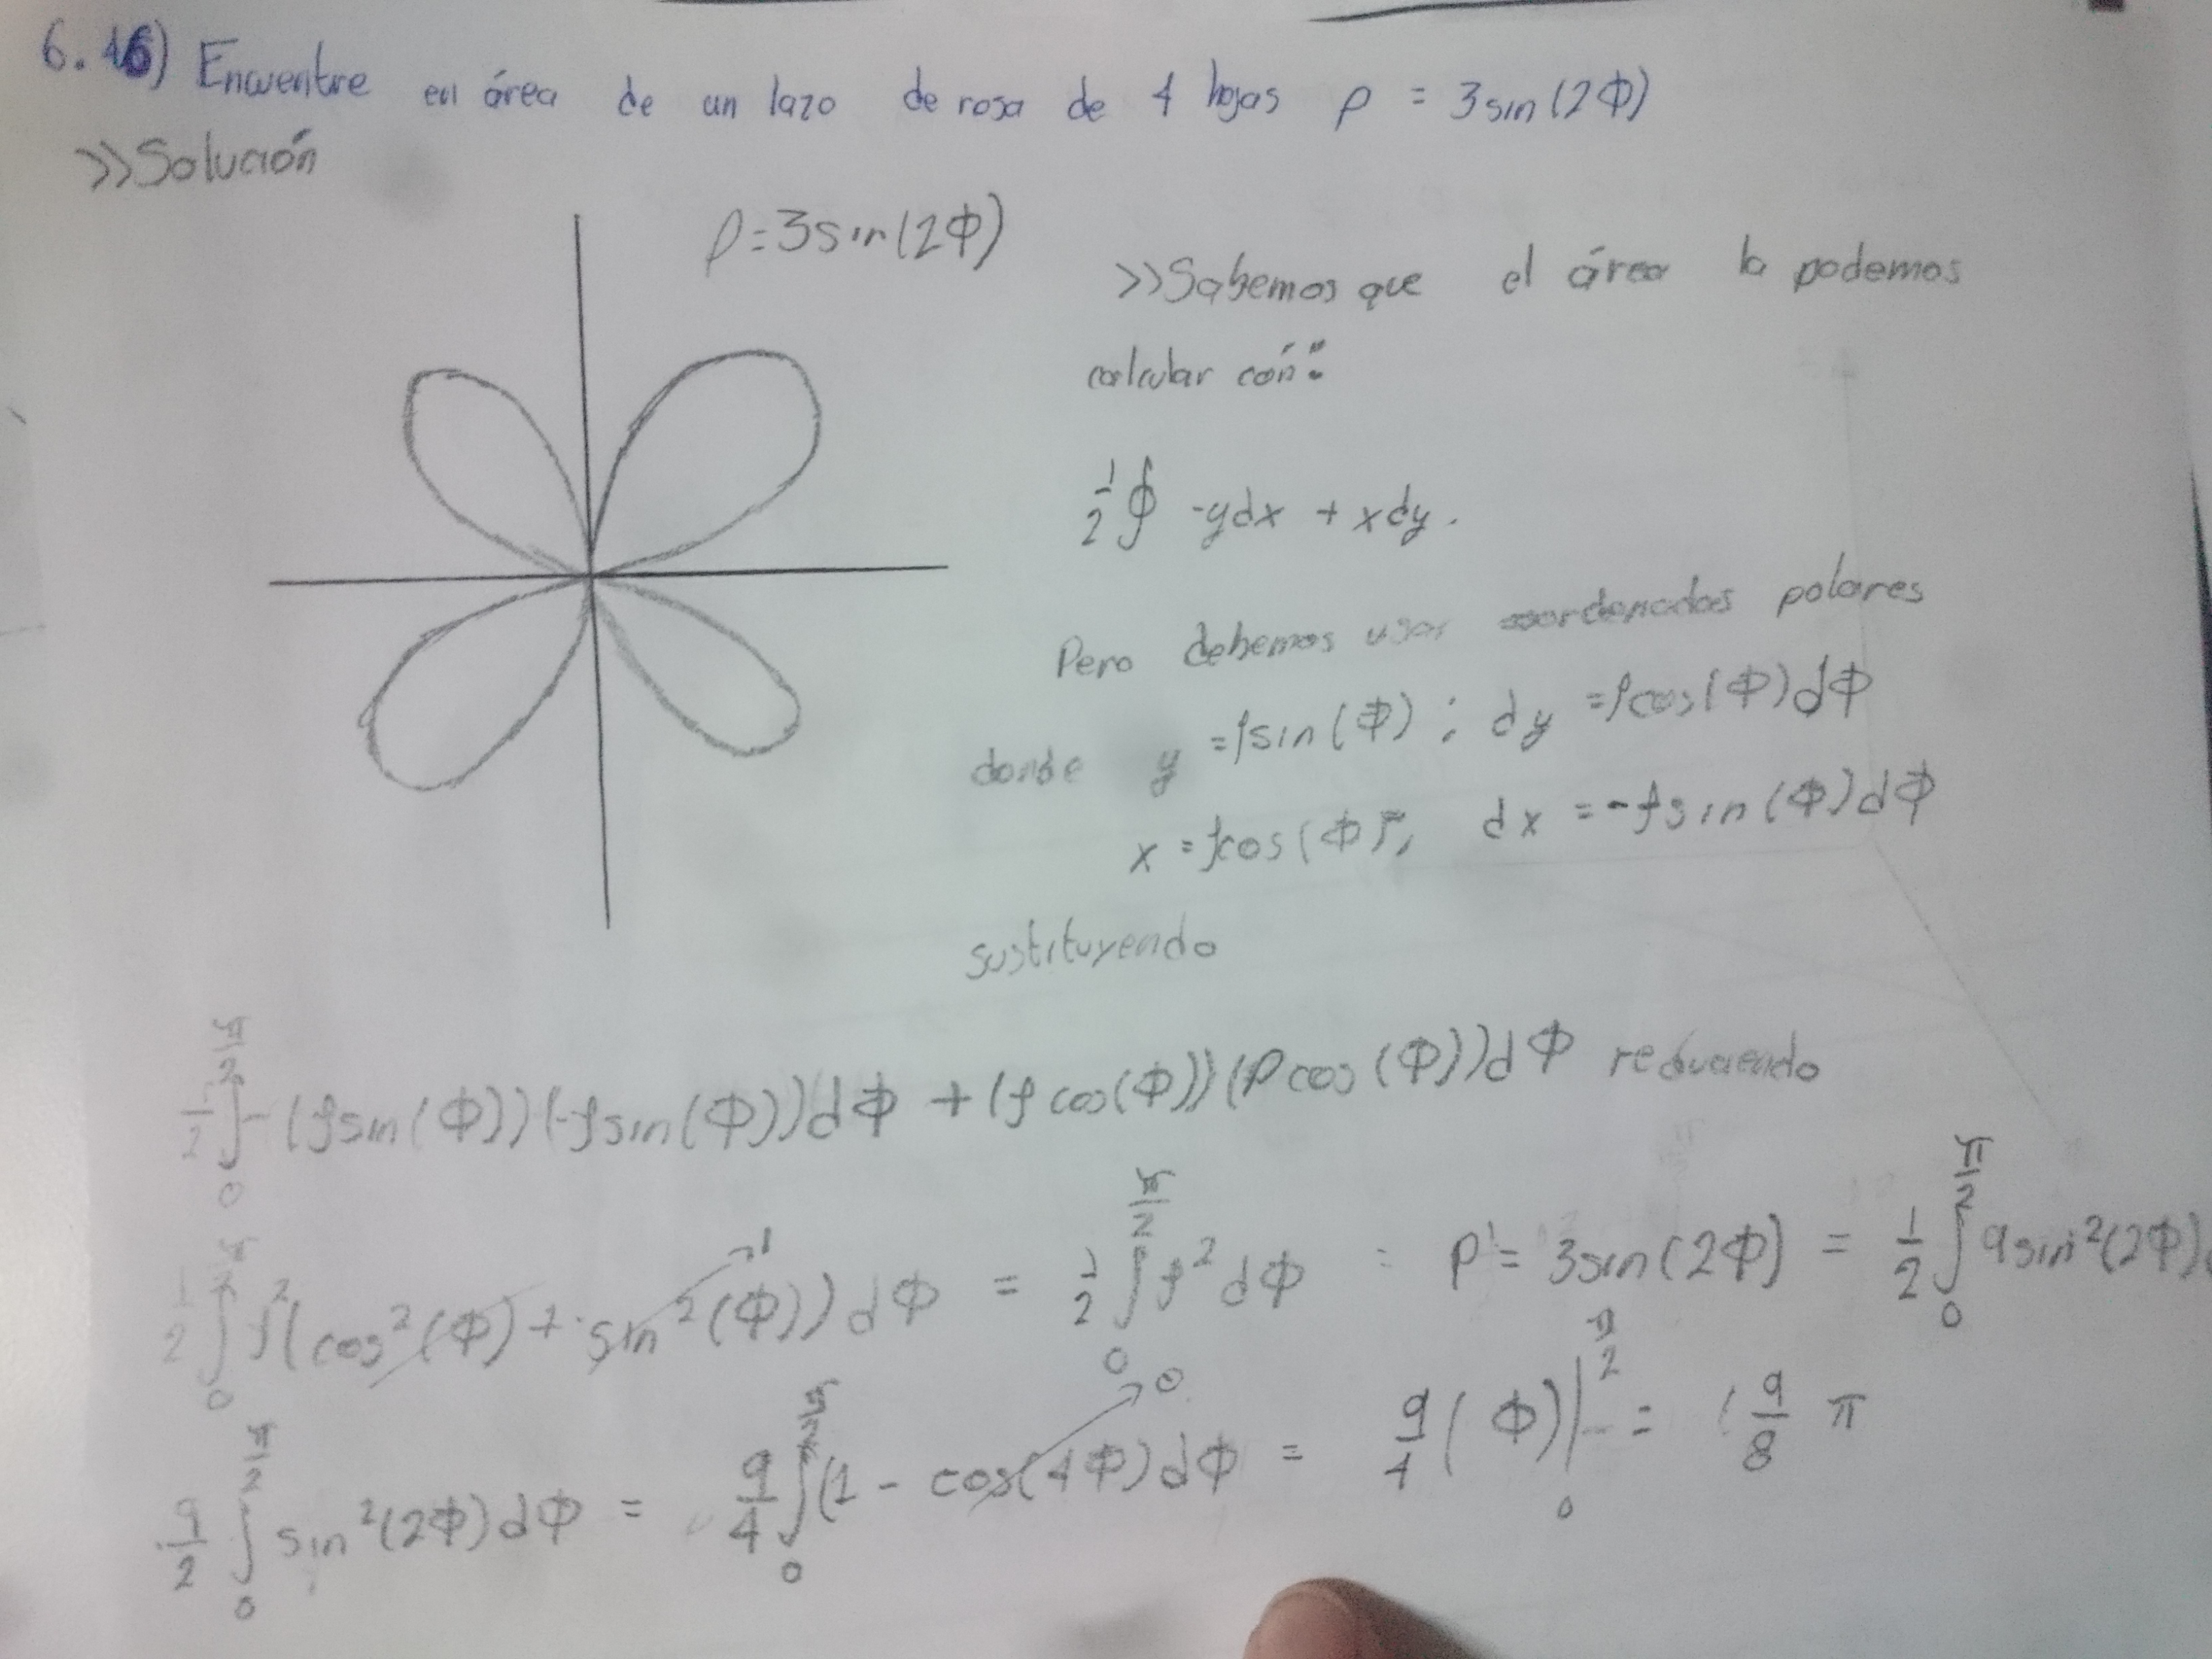 6.16) Encuentre en área de un lazo de rosa de 4 hojas ρ = 3sin(2Φ)
>>Solución
ρ=3sin(2Φ)
>>Sabemos que el área lo podemos
calcular con:
1/2 ∮ -ydx + xdy.
Pero debemos usar coordenadas polares
donde y =ρsin(Φ) ; dy =ρcos(Φ)dΦ
x =ρcos(Φ); dx =-ρsin(Φ)dΦ
sustituyendo
1/2 ∫_0^{π/2} -(ρsin(Φ))(-ρsin(Φ))dΦ + (ρcos(Φ))(ρcos(Φ))dΦ reduciendo
1/2 ∫_0^{π/2} ρ²(cos²(Φ) + sin²(Φ))→1 dΦ = 1/2 ∫_0^{π/2} ρ²dΦ = ρ = 3sin(2Φ) = 1/2 ∫_0^{π/2} 9sin²(2Φ)
9/2 ∫_0^{π/2} sin²(2Φ)dΦ = 9/4 ∫_0^{π/2} (1 - cos(4Φ)→0 dΦ = 9/4 (Φ)|_0^{π/2} = 9/8 π